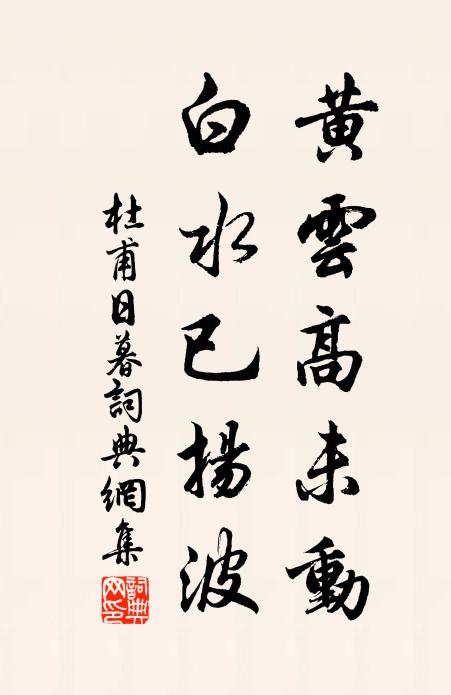 黃雲高未動
白水已揚波
杜甫日暮詞典網集
詞典網印